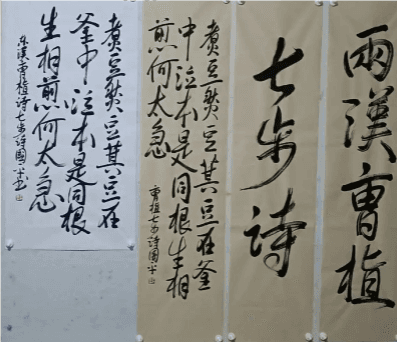 兩漢曹植
七步詩
煮豆燃豆萁豆在釜
中泣本是同根生相
煎何太急
曹植七步詩國平
煮豆燃豆萁豆在
釜中泣本是同根
生相煎何太急
東漢曹植詩七步詩國平書